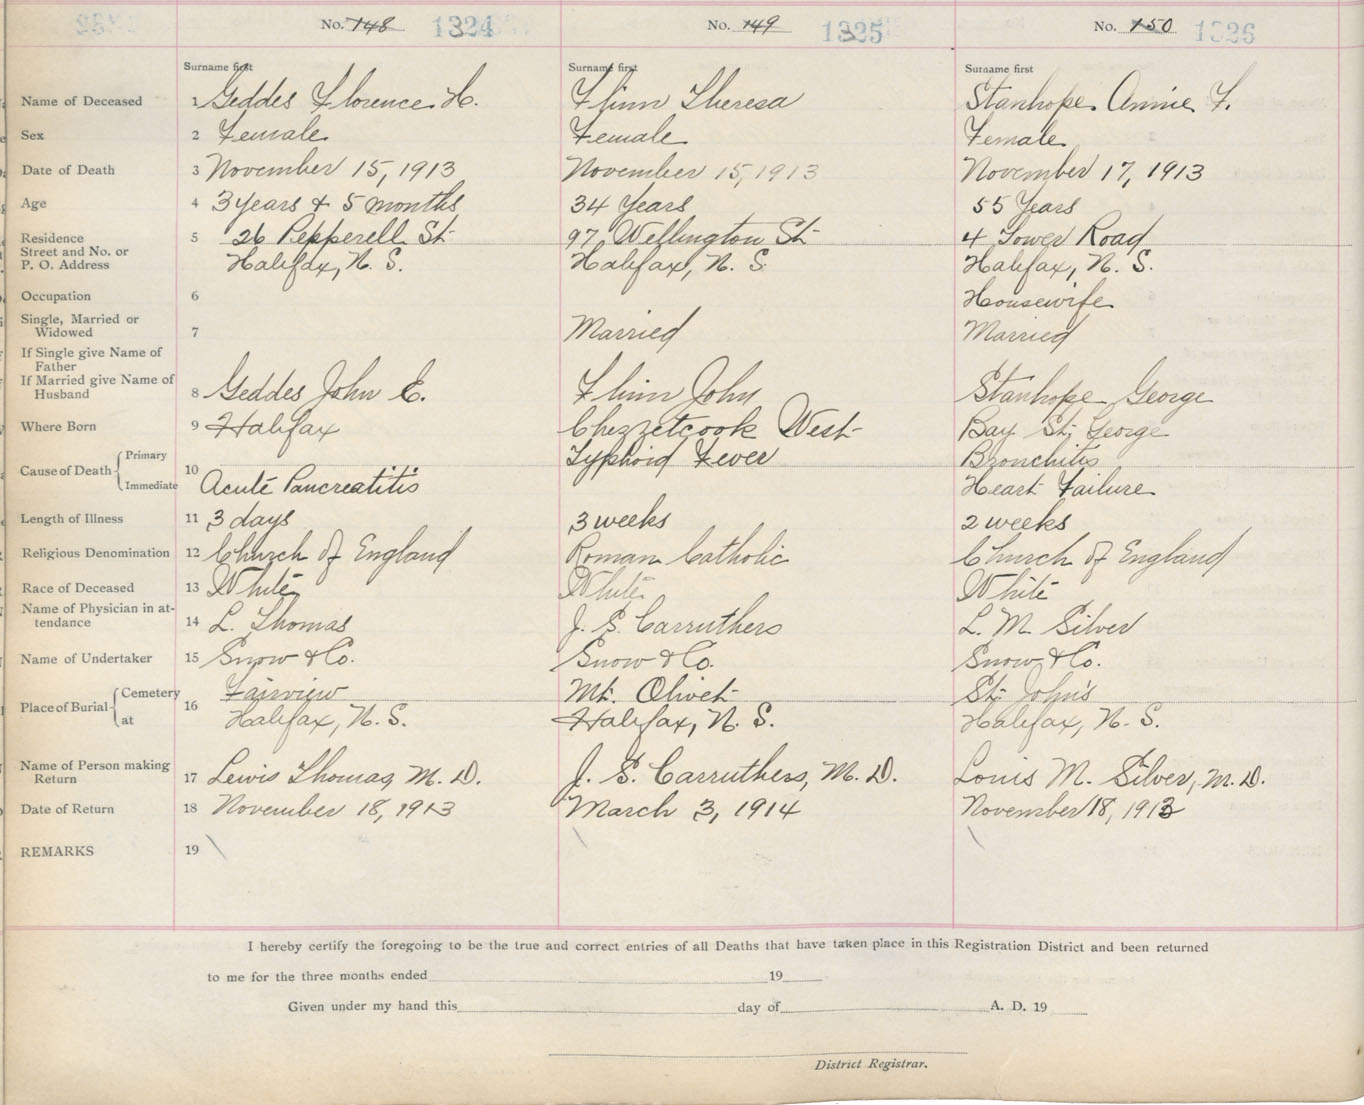 No. 148 1324 No. 149 1325 No. 150 1326
Surname first Surname first Surname first
Name of Deceased 1 Geddes Florence H. Flinn Theresa Stanhope Annie F.
Sex 2 Female Female Female
Date of Death 3 November 15, 1913 November 15, 1913 November 17, 1913
Age 4 3 years & 5 months 34 Years 55 Years
Residence 5 26 Pepperell St 97 Wellington St 4 Tower Road
Street and No. or
P. O. Address Halifax, N. S. Halifax, N. S. Halifax, N. S.
Occupation 6 Housewife
Single, Married or
Widowed 7 Married Married
If Single give Name of
Father
If Married give Name of
Husband 8 Geddes John E. Flinn John Stanhope George
Where Born 9 Halifax Chezzetcook West Bay St. George
Cause of Death Primary 10 Typhoid Fever Bronchitis
Immediate Acute Pancreatitis Heart Failure
Length of Illness 11 3 days 3 weeks 2 weeks
Religious Denomination 12 Church of England Roman Catholic Church of England
Race of Deceased 13 White White White
Name of Physician in at-
tendance 14 L. Thomas J. S. Carruthers L. M. Silver
Name of Undertaker 15 Snow & Co. Snow & Co. Snow & Co.
Place of Burial Cemetery 16 Fairview Mt. Olivet St. John's
at Halifax, N. S. Halifax, N. S. Halifax, N. S.
Name of Person making
Return 17 Lewis Thomas, M. D. J. S. Carruthers, M. D. Louis M. Silver, M. D.
Date of Return 18 November 18, 1913 March 3, 1914 November 18, 1913
REMARKS 19
I hereby certify the foregoing to be the true and correct entries of all Deaths that have taken place in this Registration District and been returned
to me for the three months ended 19
Given under my hand this day of A. D. 19
District Registrar.